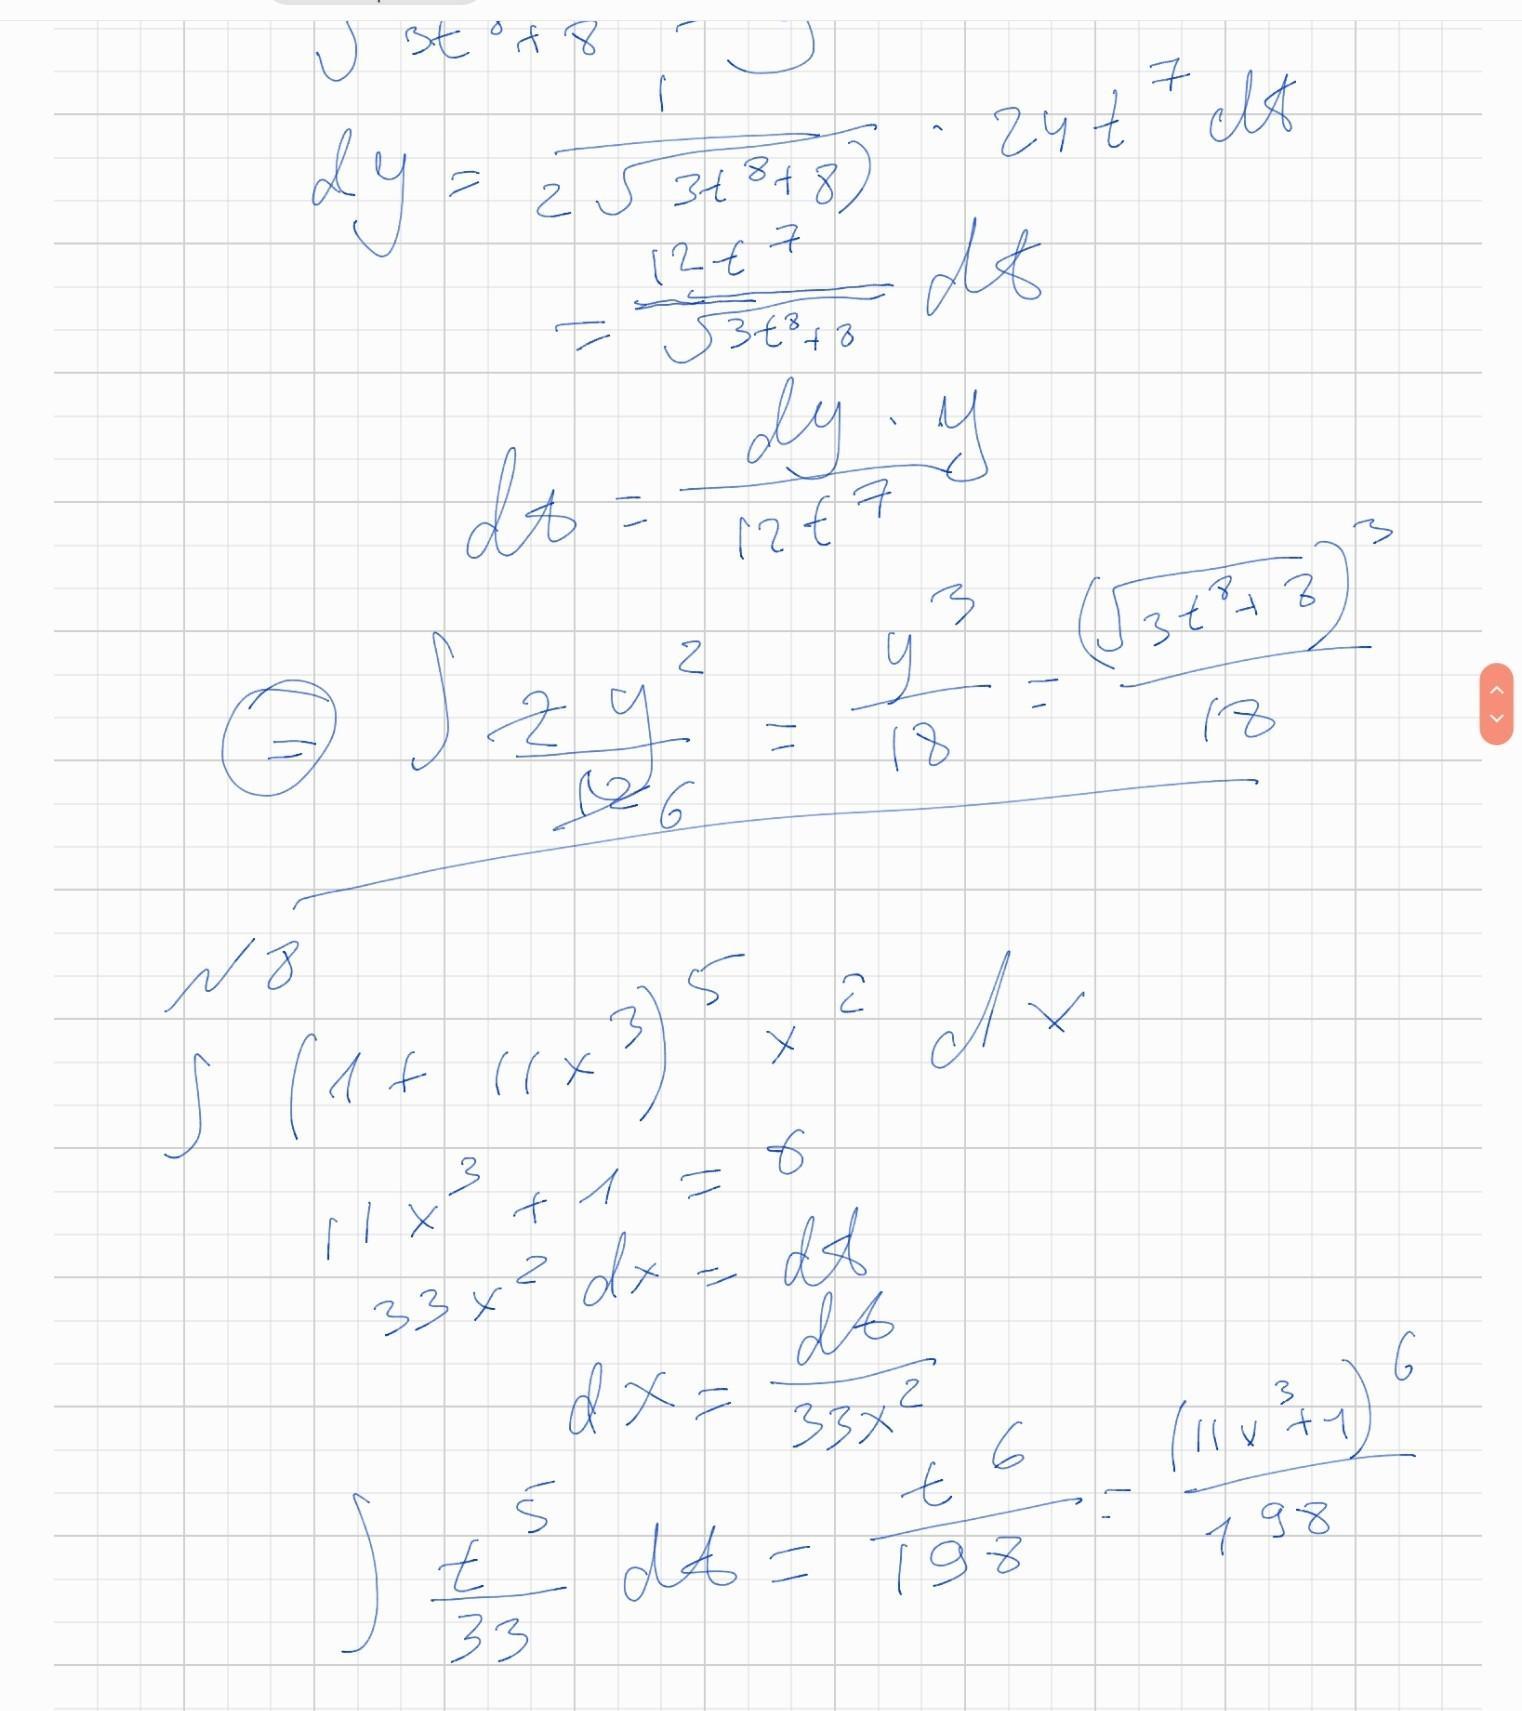 √3t⁸ + 8 = y
dy = 1/(2√(3t⁸+8)) · 24t⁷ dt
= 12t⁷/√(3t⁸+8) dt
dt = dy · y/12t⁷
= ∫ 2y²/12 6 = y³/18 = (√(3t⁸+8))³/18
N 8
∫ (1 + 11x³)⁵ x² dx
11x³ + 1 = t
33x² dx = dt
dx = dt/33x²
∫ t⁵/33 dt = t⁶/198 = (11x³+1)⁶/198